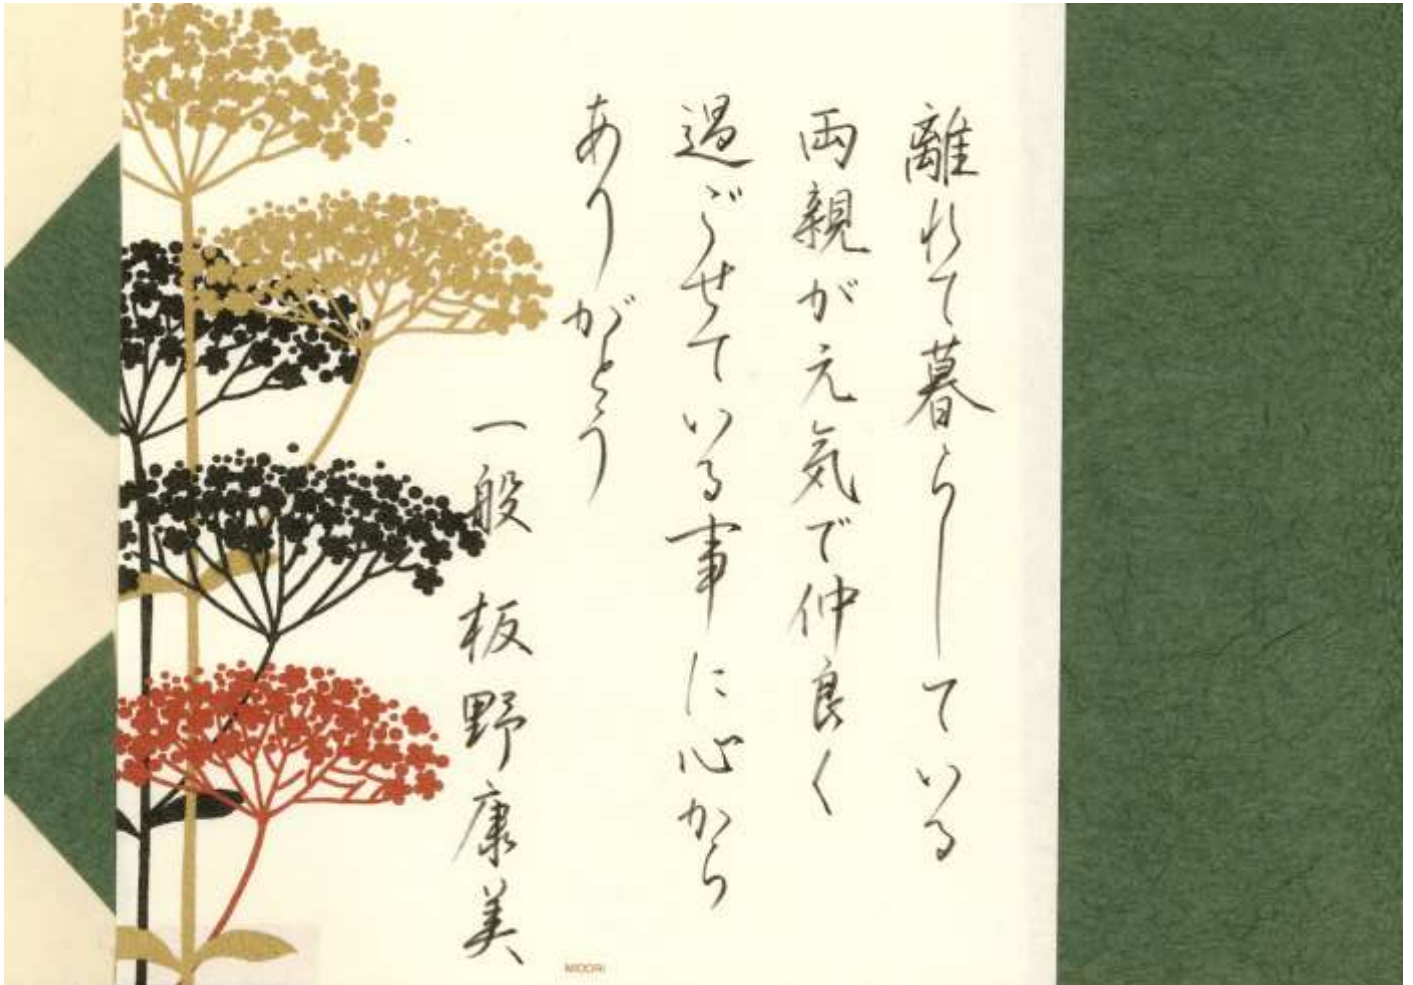 離れて暮らしている
両親が元気で仲良く
過ごせている事に心から
ありがとう
一般 板野康美
MIDORI